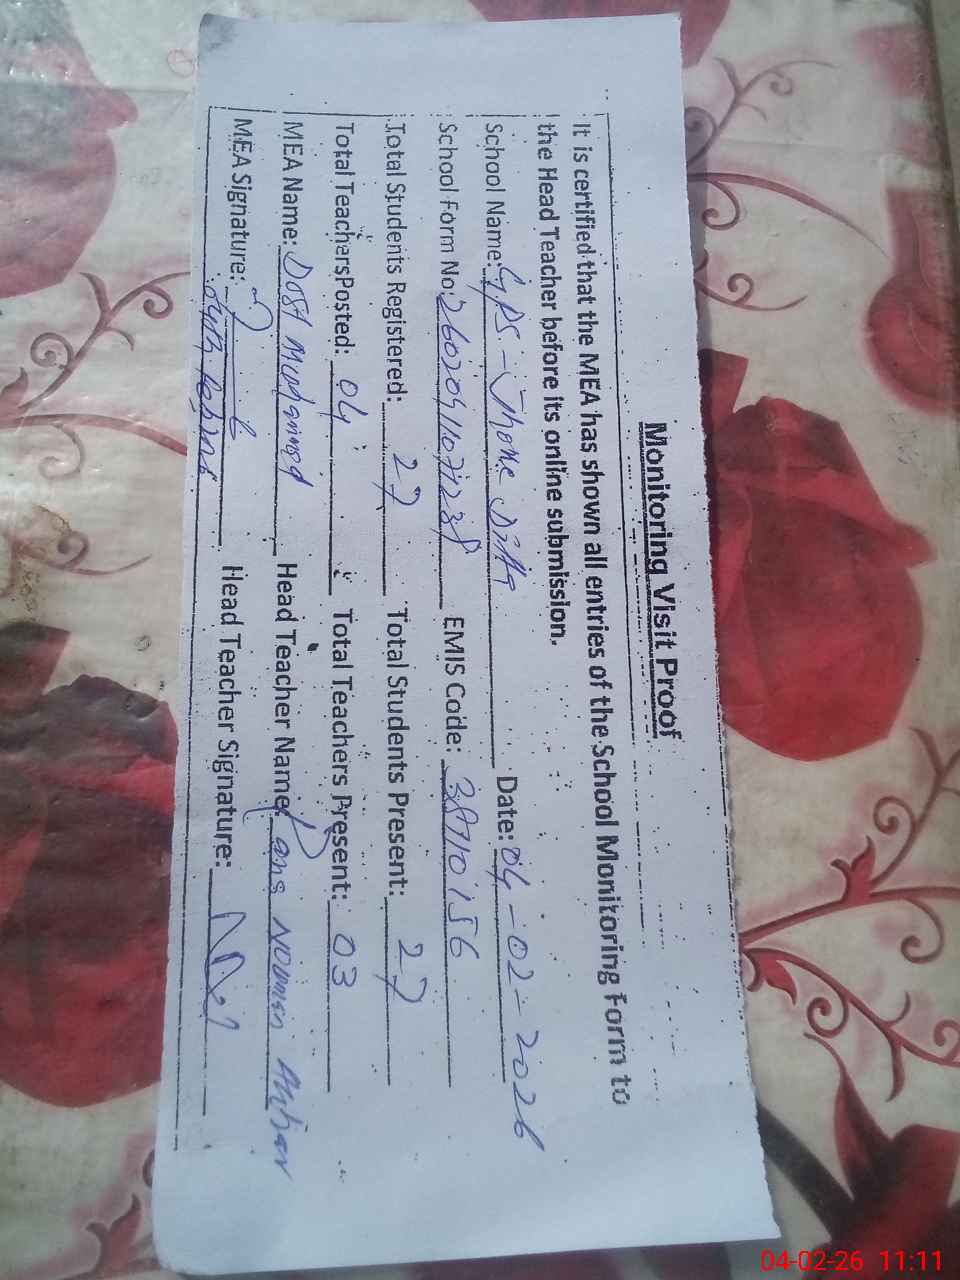 Monitoring Visit Proof
It is certified that the MEA has shown all entries of the School Monitoring Form to
the Head Teacher before its online submission.
School Name: GPS - Jhoke Ditta Date: 04-02-2026
School Form No: EMIS Code:
Total Students Registered: 27 Total Students Present: 27
Total Teachers Posted: 04 Total Teachers Present: 03
MEA Name: Dost Muhammad Head Teacher Name: Rana Noman
MEA Signature: Head Teacher Signature:
04-02-26 11:11